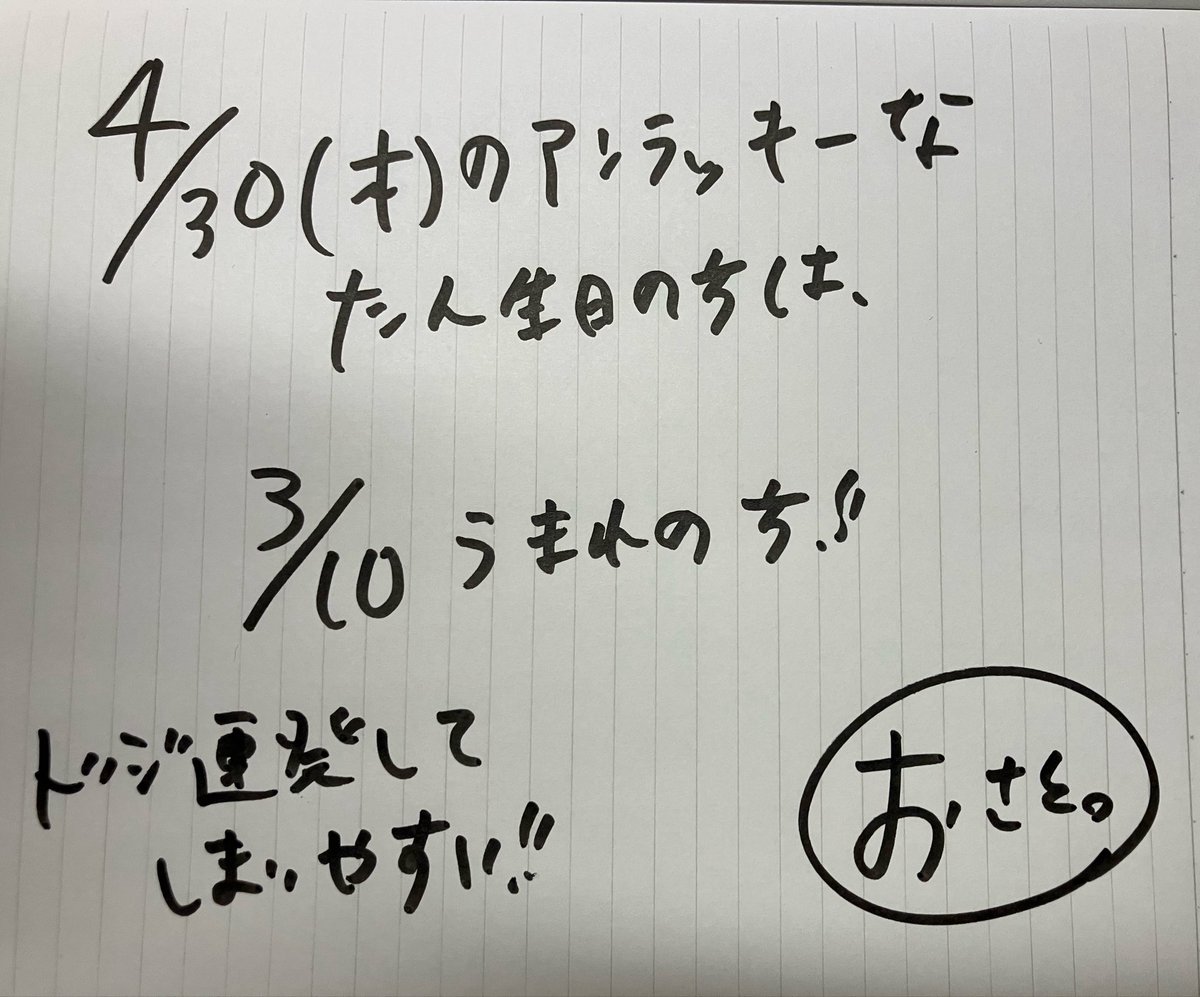 4/30(木)のアンラッキーな
たん生日の方は、
3/10 うまれの方!!
ドジ連発して
しまいやすい!!
おさと。